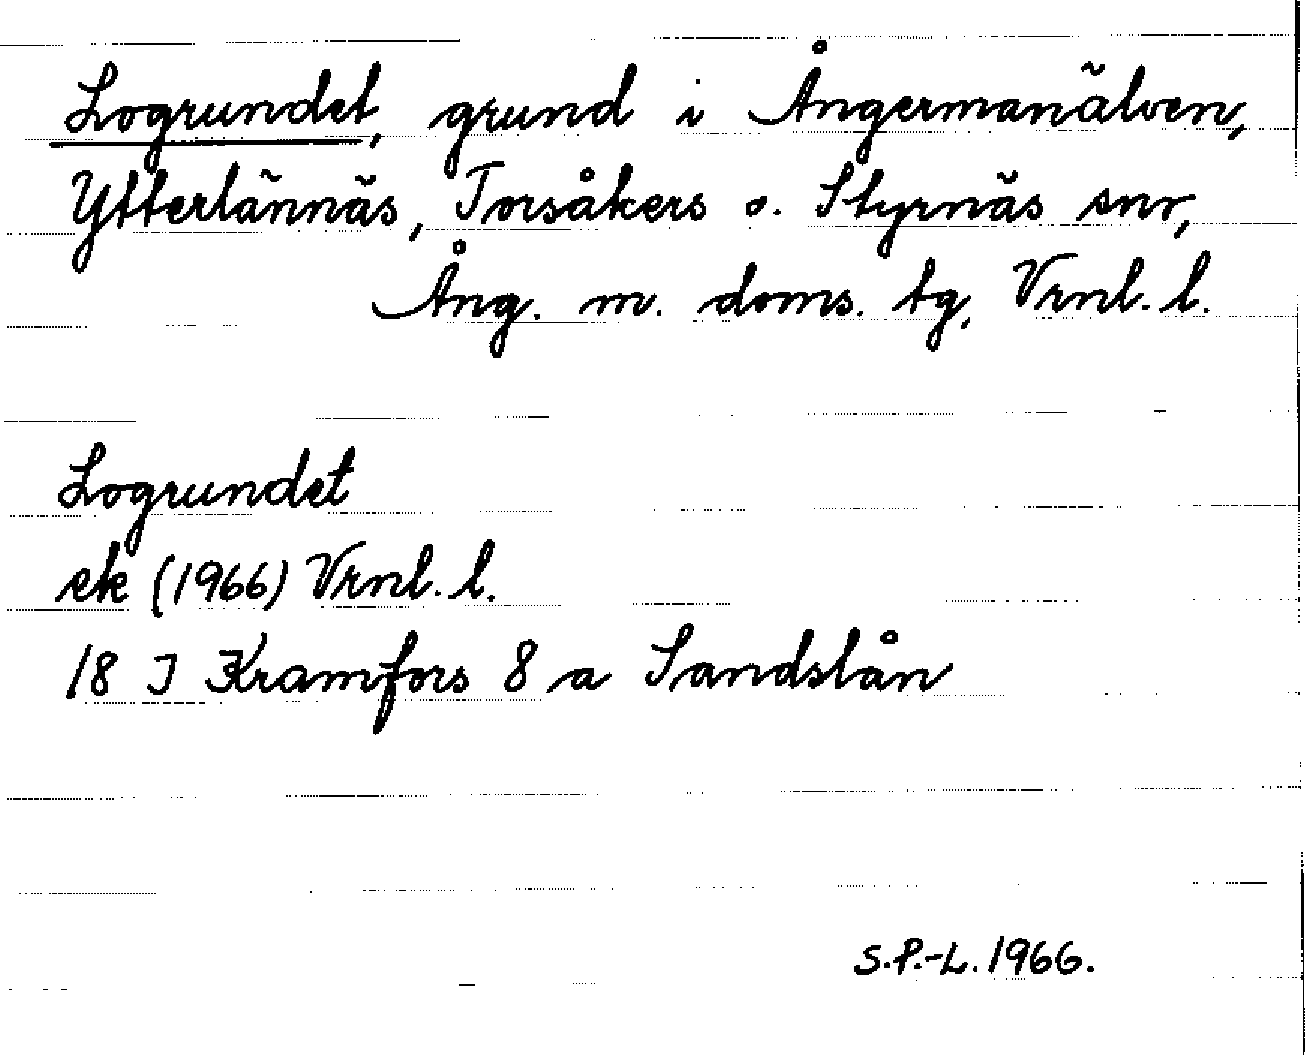 Logrundet, grund i Ångermanälven,
Ytterlännäs, Torsåkers o. Styrnäs snr,
Ång. m. doms. tg, Vrnl. l.
Logrundet
ek (1966) Vrnl. l.
18 J Kramfors 8 a Sandslån
S.P.-L. 1966.